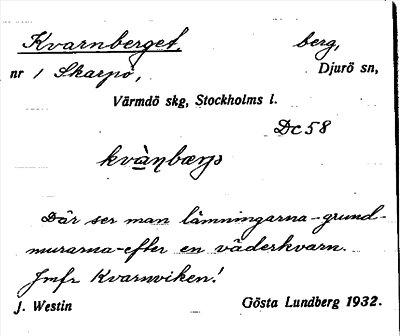 Kvarnberget, berg,
nr 1 Skarpö, Djurö sn,
Värmdö skg, Stockholms l.
Dc 58
Där ser man lämningarna-grund-
murarna-efter en väderkvarn.
Jmfr Kvarnviken!
J. Westin Gösta Lundberg 1932.